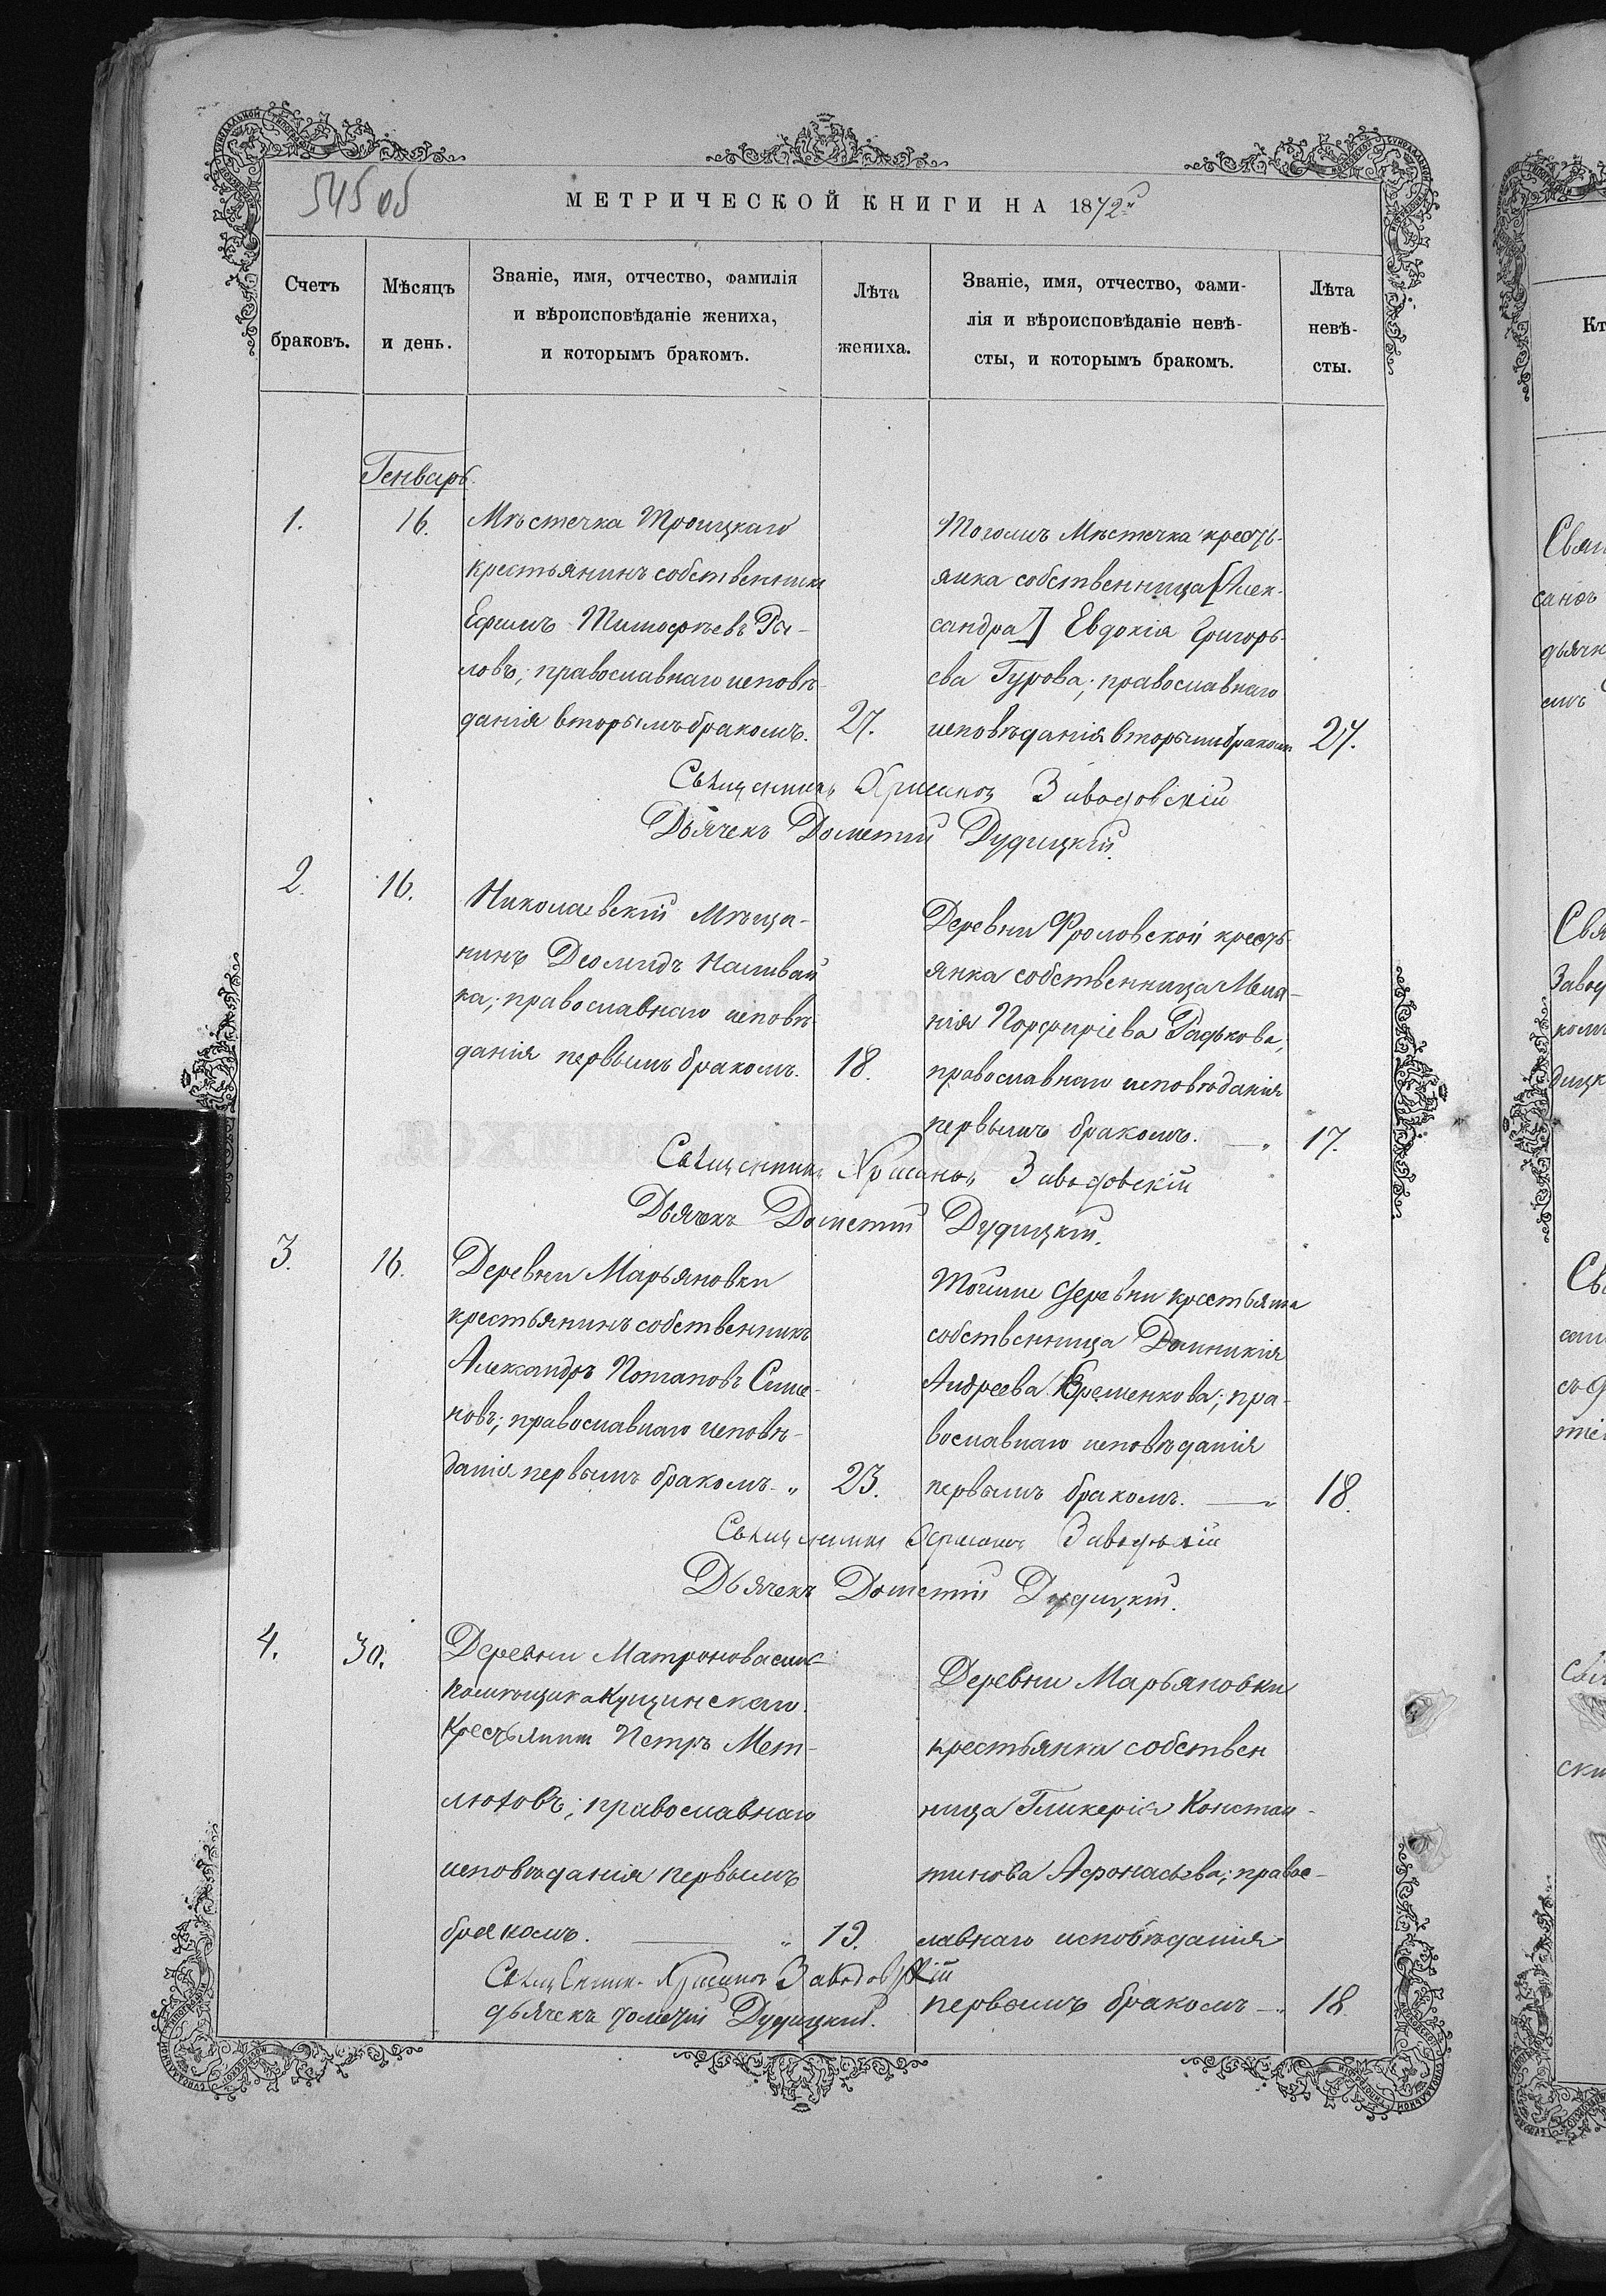 545 об
МЕТРИЧЕСКОЙ КНИГИ НА 1872й
Счетъ браковъ.
Мѣсяцъ и день.
Званіе, имя, отчество, фамилія
и вѣроисповѣданіе жениха,
и которымъ бракомъ.
Лѣта жениха.
Званіе, имя, отчество, фами-
лія и вѣроисповѣданіе невѣ-
сты, и которымъ бракомъ.
Лѣта невѣ-
сты.
Генварь.
1.
16.
Мѣстечка Троицкаго
крестьянинъ собственникъ
Ефимъ Тимофѣевъ Ры-
ловъ; православнаго исповѣ-
данія вторымъ бракомъ.
27.
Тогожъ Мѣстечка кресть-
янка собственница [Алек-
сандра] Евдокія Григорь-
ева Гурова; православнаго
исповѣданія вторымъ бракомъ
27.
Священникъ Заводовскій
Дьячекъ Дометій Дудицкій.
2.
16.
Николаевскій Мѣща-
нинъ Деомидъ Наливай
ка; православнаго исповѣ-
данія первымъ бракомъ.
18.
Деревни Фроловской кресть-
янка собственница Мела-
нія Порфиріева Радькова;
православнаго исповѣданія
первымъ бракомъ. — „
17.
Священникъ Заводовскій
Дьячекъ Дометій Дудицкій.
3.
16.
Деревни Марьяновки
крестьянинъ собственникъ
Александръ Потаповъ Симо-
новъ; православнаго исповѣ-
данія первымъ бракомъ. „
23.
Тойже деревни крестьянка
собственница Домникія
Андреева Временкова; пра-
вославнаго исповѣданія
первымъ бракомъ. — „
18.
Священникъ Заводовскій
Дьячекъ Дометій Дудицкій.
4.
30.
Деревни
помѣщика Кущинскаго
Крестьянинъ Петръ Мет-
люховъ; православнаго
исповѣданія первымъ
бракомъ. — „
19.
Деревни Марьяновки
крестьянка собствен
ница Гликерія Констан-
тинова Афонасьева; правос-
лавнаго исповѣданія
первымъ бракомъ — „
18.
Священникъ Заводовскій
дьячекъ Дометій Дудицкій.